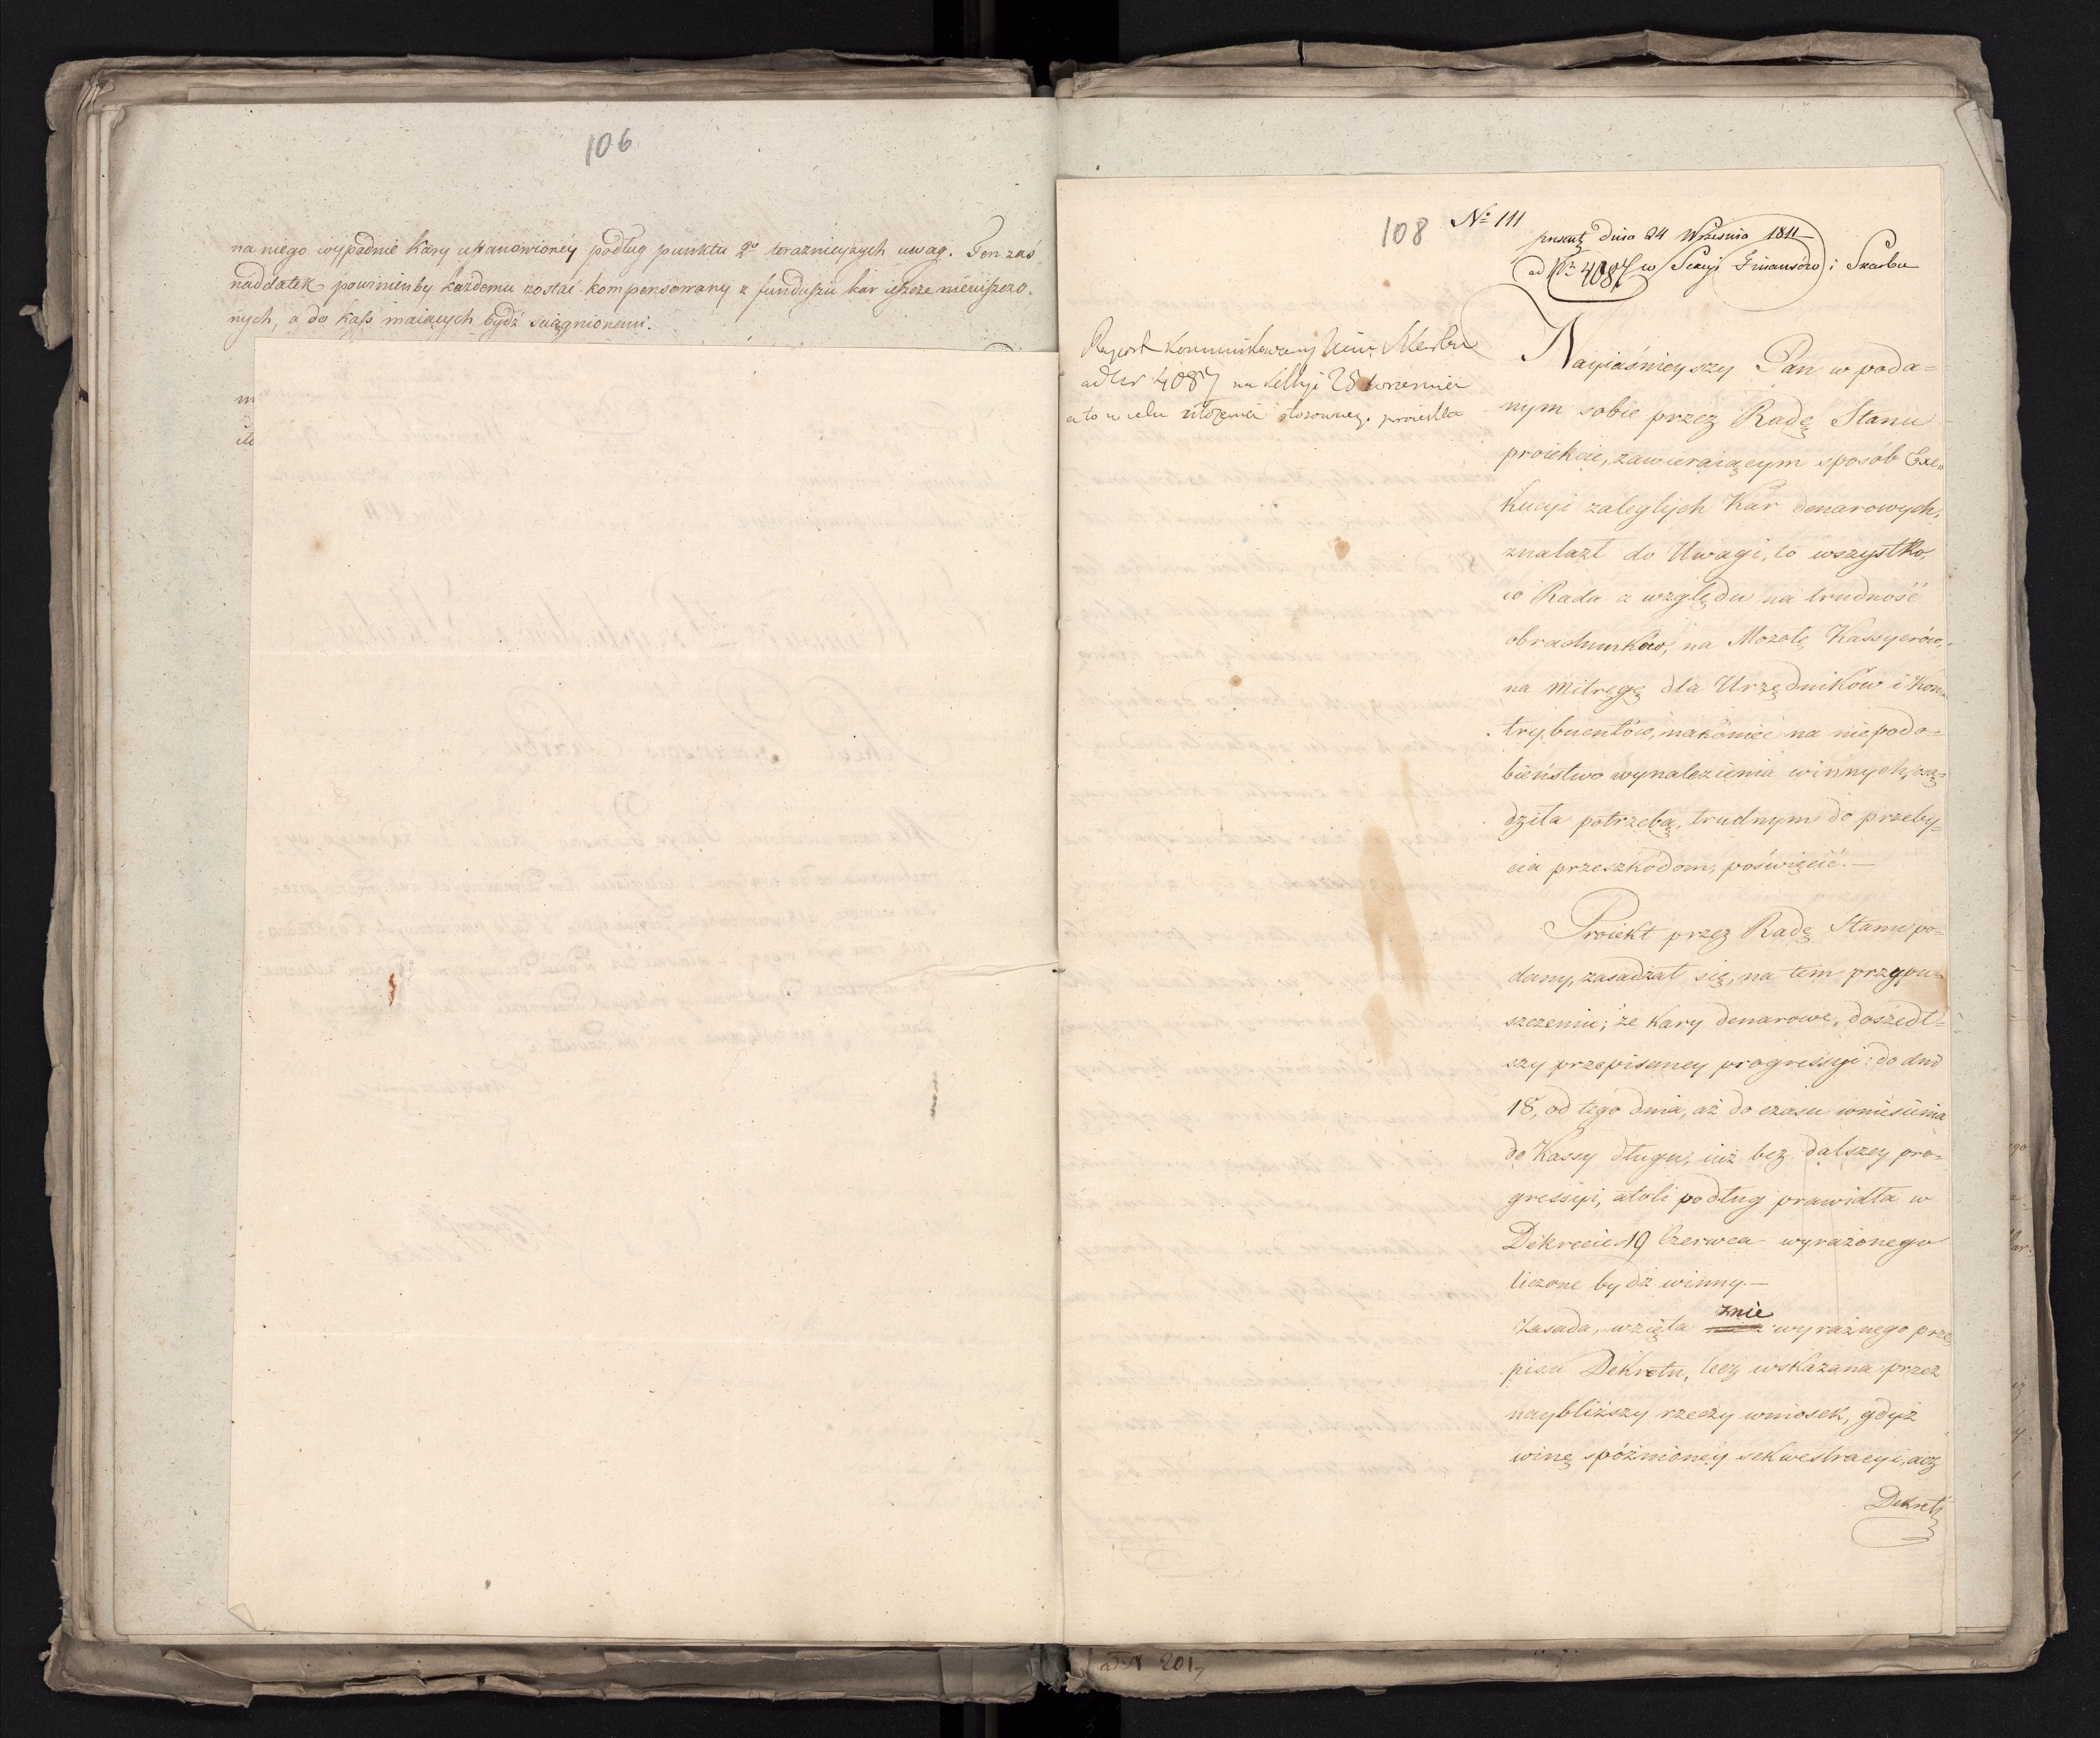 106
na niego wypadnie Kary ustanowioney podług punktu 2º teraznieyszych uwag. Ten zaś
naddatek powinienby każdemu zostać kompensowany z funduszu kar ieszcze nieuiszczo.
nych, a do kass maiących bydź sciągnionemi.
108 Nº 111
present dnia 24 Września 1811
ad Nr 4087 w Sekcyi Finansów i Skarbu
Raport kommunikowany
ad Nr 4087 na Sekcyi 28 wrzesnia
a to w celu ułożenia stosowneg. proiektu
Nayiaśnieyszy Pan w poda=
nym sobie przez Radę Stanu
proiekcie, zawieraiącym sposób Exe=
kucyi zaległych Kar denarowych,
znalazł do Uwagi, to wszystko,
co Rada z względu na trudność
obrachunków, na Mozołę Kassyerów,
na mitręgę dla Urzędników i Kon=
trybuentów, nakoniec na niepodo=
bieństwo wynalezienia winnych, osą=
dziła potrzebą, trudnym do przeby=
cia przeszkodom, poświęcić.—
Proiekt przez Radę Stanu po=
dany, zasadzał się, na tem przypu=
szczeniu; że Kary denarowe, doszedł=
szy przepisaney progressyi: do dnia
18, od tego dnia, aż do czasu wniesienia
do Kassy długu, iuż bez dalszey pro=
gressyi, atoli podług prawidła w
Dekrecie 19 Czerwca wyrażonego
liczone bydź winny.—
znie
Zasada, wzięta wyraźnego prze
pisu Dekretu, lecz wskazana przez
naybliższy rzeczy wniosek, gdyż
winę spóźnioney sekwestracyi, acz
Dekret
ad N 2017